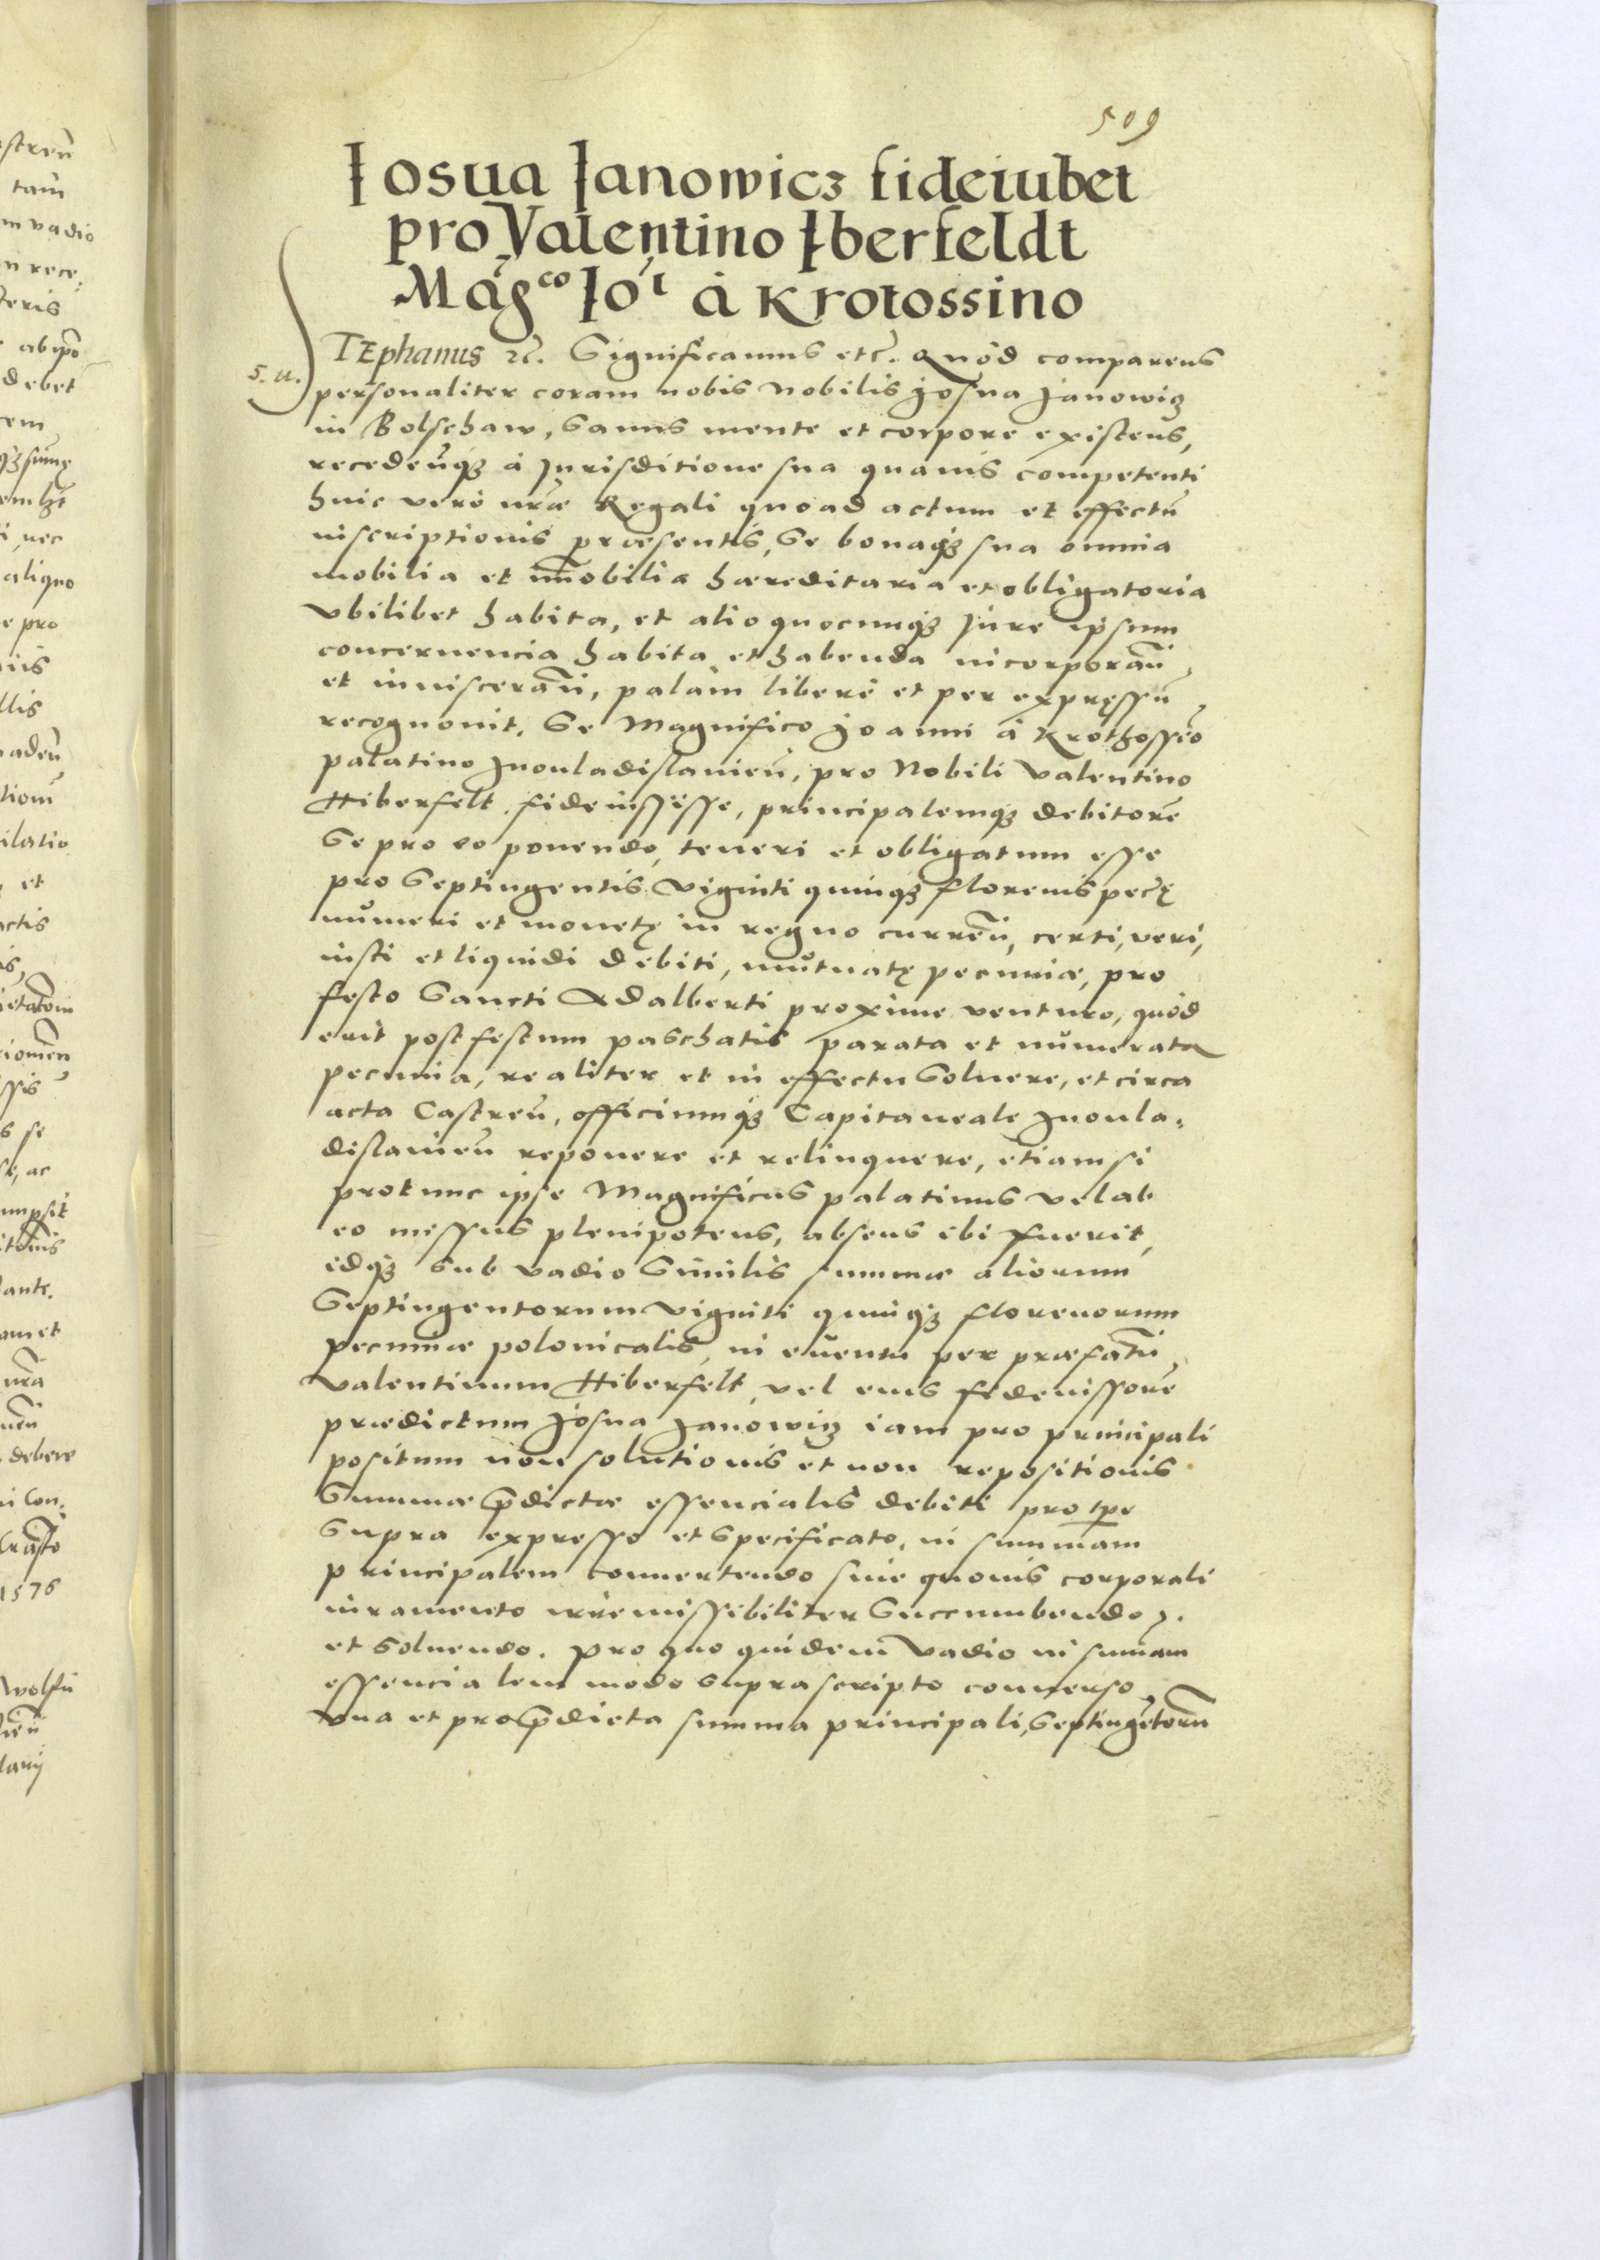 509
Iosua Ianowicz fideiubet
pro Valentino Iberfeldt
Mag͂co Io͂i à Krotossino
STEphanus ec̃. Significamus etc̃. Quòd comparens
s. u.
personaliter coram nobis Nobilis Josua Janowicz
in Bolschaw, sanus mente et corpore existens,
recedeñqȝ à Jurisditione sua quauis competenti
huic verò nr̃æ Regali quo ad actum et effectũ
inscriptionis præsentis, se bonaqȝ sua omnia
mobilia et im̃obilia hæreditaria et obligatoria
vbilibet habita, et alio quocunqȝ Jure ipsum
concernencia habita et habenda incorporañ
et inuisceranñ, palàm liberè et per expressũ
recognouit. Se Magnifico Joanni à Krothossĩo
palatino Jnouladislauieñ, pro Nobili Valentino
Hiberfelt fideiussisse, principalemqȝ debitorẽ
se pro eo ponendo, teneri et obligatum esse
pro septingentis viginti quinqȝ florenis pecę
numeri et monetę in regno curreñ, certi, veri,
iusti et liquidi debiti, mutuatę pecuniæ, pro
festo Sancti Adalberti proxime venturo, quòd
erit post festum paschatis parata et numerata
pecunia, realiter et in effectu soluere, et circa
acta Castreñ, officiumqȝ Capitaneale Jnoula-
dislauieñ reponere et relinquere, etiam si
protunc ipse Magnificus palatinus vel ab
eo missus plenipotens, absens ibi fuerit,
idqȝ sub vadio similis summæ aliorum
Septingentorum viginti quinqȝ florenorum
pecuniæ polonicalis, in euentu per præfatũ
Valentinum Hiberfelt, vel eius fideiussorẽ
prædictum Josua Janowicz iam pro principali
positum non solutionis et non repositionis
summæ p̃dictæ essencialis debiti pro tp̃e
supra expresso et specificato, in summam
principalem conuertendo siue quouis corporali
iuramento irremissibiliter succumbendo
et soluendo. Pro quo quidem vadio in sum̃am
essencialem modo suprascripto conuerso
vna et pro p̃dicta summa principali, septingẽtorũ